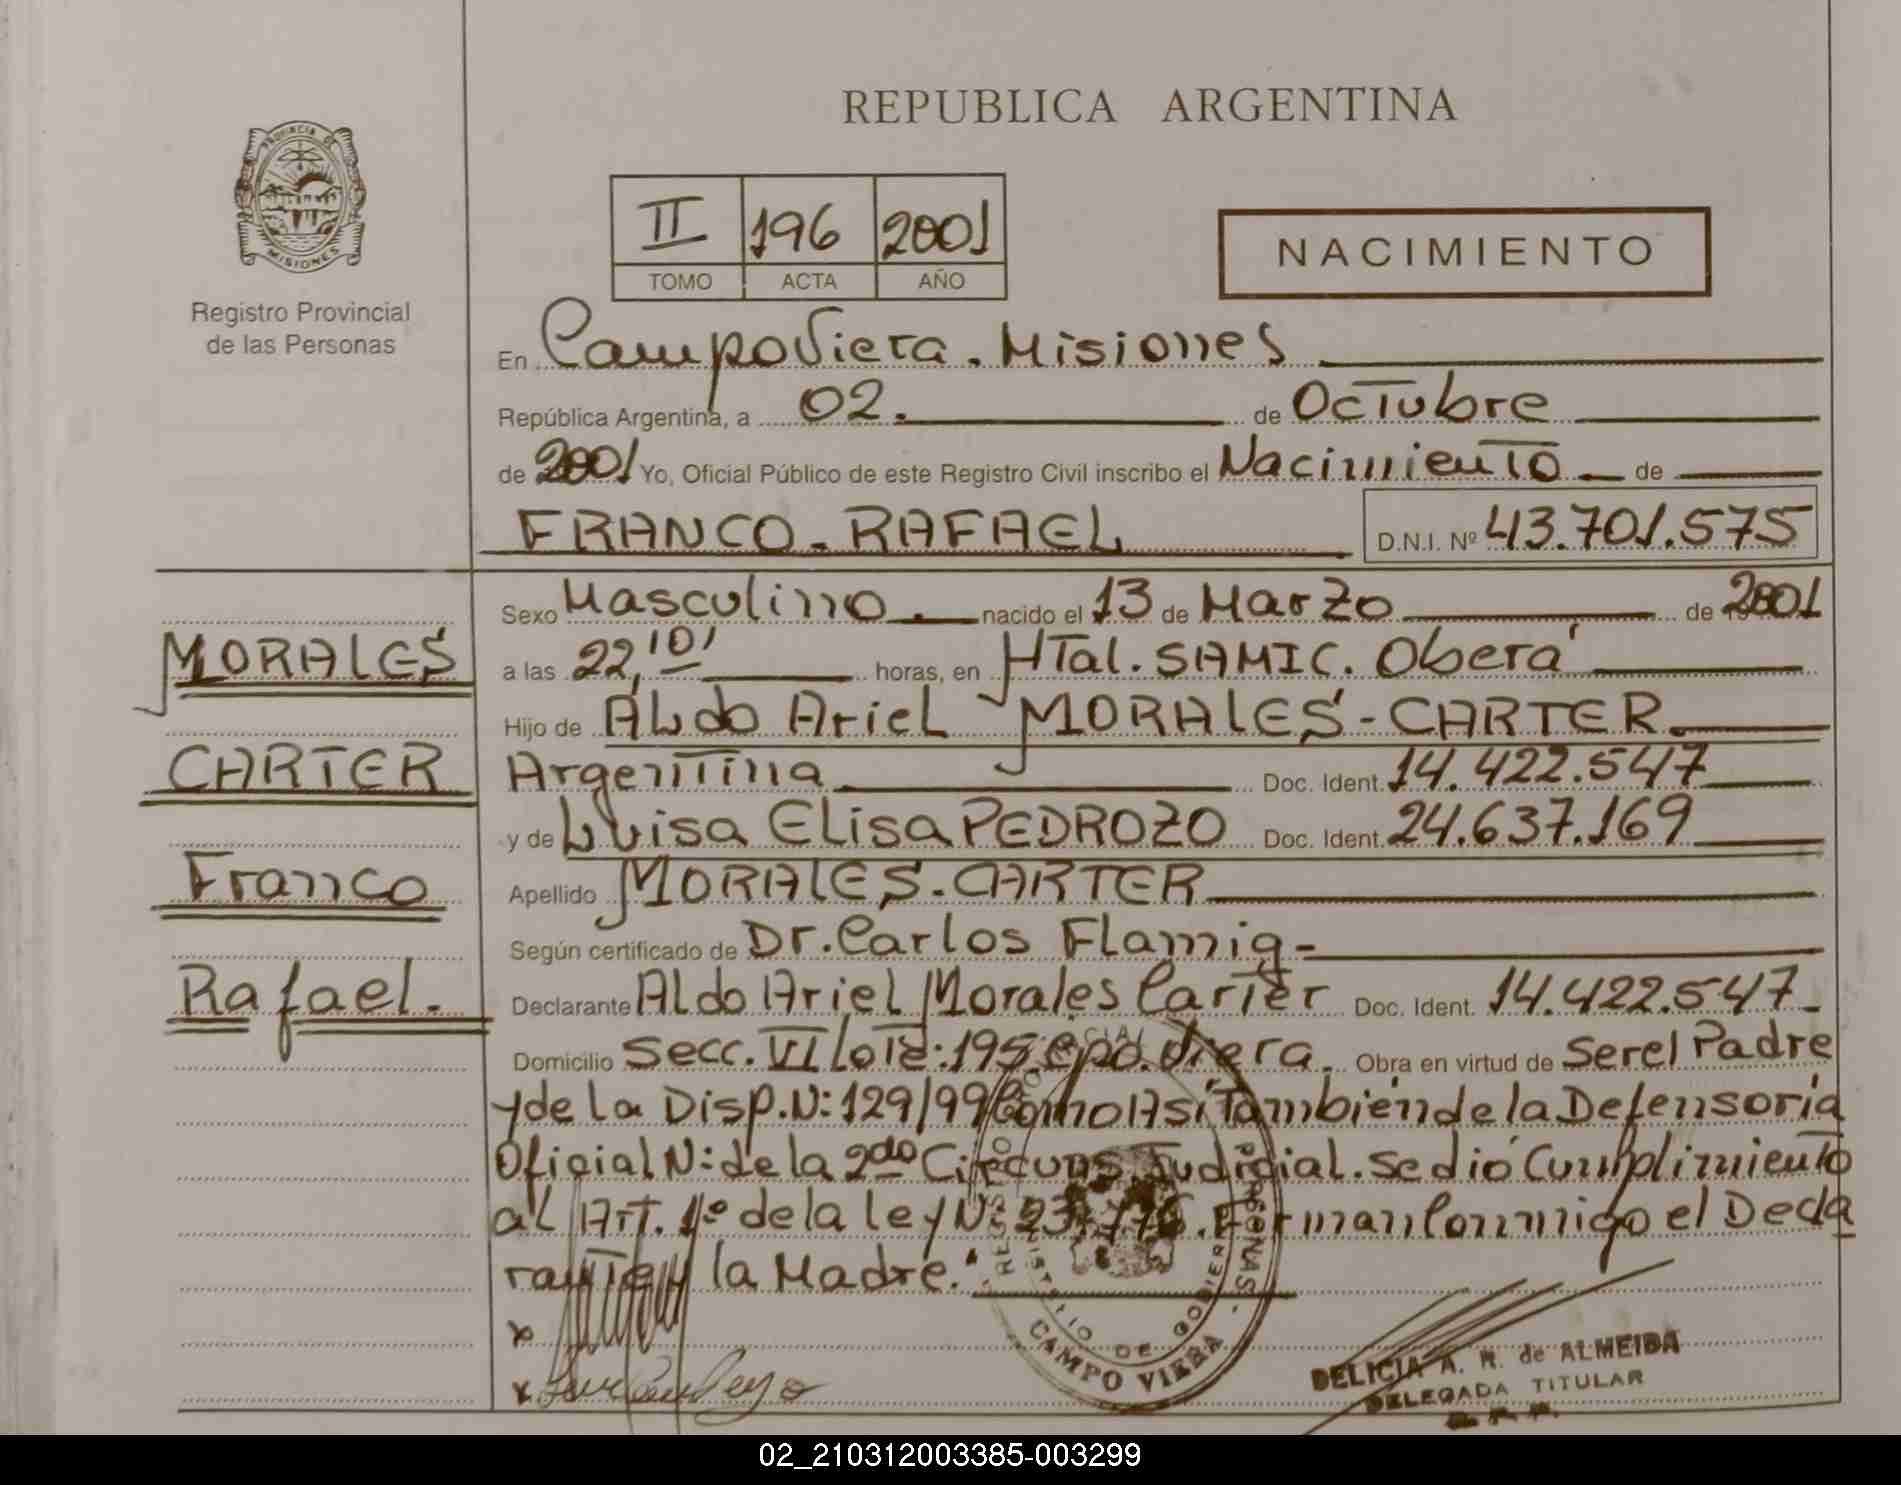 REPUBLICA ARGENTINA
PROVINCIA DE MISIONES
Registro Provincial
de las Personas
II 196 2001
TOMO ACTA AÑO
NACIMIENTO
En Campo Viera. Misiones
República Argentina, a 02. de Octubre
de 2001 Yo, Oficial Público de este Registro Civil inscribo el Nacimiento de
FRANCO-RAFAEL D.N.I. Nº 43.701.575
MORALES
CARTER
Franco
Rafael.
Sexo Masculino. nacido el 13 de Marzo de 2001
a las 22,10' horas, en HTal. SAMIC. Oberá
Hijo de Aldo Ariel MORALES-CARTER.
Argentina Doc. Ident. 14.422.547
y de Luisa Elisa PEDROZO Doc. Ident. 24.637.169
Apellido MORALES-CARTER
Según certificado de Dr. Carlos Flamig-
Declarante Aldo Ariel Morales Carter Doc. Ident. 14.422.547-
Domicilio Secc. VI lote: 195 cpo. Viera. Obra en virtud de Ser el Padre
y de la Disp. N: 129/99 Como Asi También de la Defensoría
Oficial N: de la 2do Circuns Judicial. Se dió Cumplimiento
al Art. 1º de la ley N: Firman Conmigo el Decla
rante y la Madre.
x
x
REGISTRO PERSONAS
MINISTERIO DE GOBIERNO
CAMPO VIERA
DELICIA A. R. de ALMEIDA
DELEGADA TITULAR
02_210312003385-003299